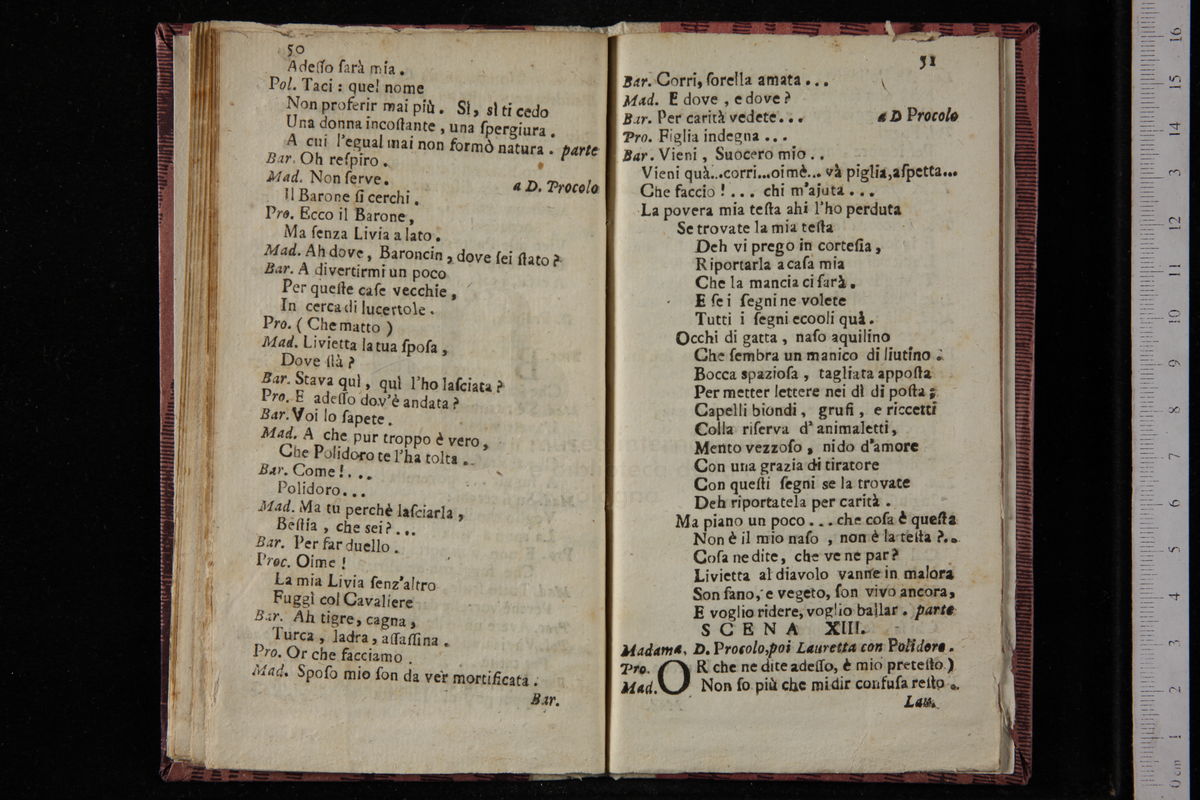 50
Adeſſo ſarà mia.
Pol. Taci: quel nome
Non proferir mai più. Sì, sì ti cedo
Una donna incoſtante, una ſpergiura.
A cui l'egual mai non formò natura. parte
Bar. Oh reſpiro.
Mad. Non ſerve. a D. Procolo
Il Barone ſi cerchi.
Pro. Ecco il Barone,
Ma ſenza Livia a lato.
Mad. Ah dove, Baroncin, dove ſei ſtato?
Bar. A divertirmi un poco
Per queſte caſe vecchie,
In cerca di lucertole.
Pro. (Che matto)
Mad. Livietta la tua ſpoſa,
Dove ſlà?
Bar. Stava quì, quì l'ho laſciata?
Pro. E adeſſo dov'è andata?
Bar. Voi lo ſapete.
Mad. A che pur troppo è vero,
Che Polidoro te l'ha tolta..
Bar. Come!...
Polidoro...
Mad. Ma tu perchè laſciarla,
Beſtia, che sei?...
Bar. Per far duello.
Proc. Oime!
La mia Livia ſenz'altro
Fuggì col Cavaliere
Bar. Ah tigre, cagna,
Turca, ladra, aſſaſſina.
Pro. Or che facciamo.
Mad. Spoſo mio ſon da ver mortificata.
Bar.
51
Bar. Corri, ſorella amata...
Mad. E dove, e dove?
Bar. Per carità vedete... a D Procolo
Pro. Figlia indegna...
Bar. Vieni, Suocero mio..
Vieni quà...corri...oimè... và piglia,aſpetta...
Che faccio!... chi m'ajuta...
La povera mia teſta ahi l'ho perduta
Se trovate la mia teſta
Deh vi prego in corteſia,
Riportarla a caſa mia
Che la mancia ci ſarà.
E ſe i ſegni ne volete
Tutti i ſegni ecooli quì.
Occhi di gatta, naſo aquilino
Che ſembra un manico di liutino.
Bocca spazioſa, tagliata appoſta
Per metter lettere nei dì di poſta;
Capelli biondi, grufi, e riccetti
Colla riſerva d'animaletti,
Mento vezzoſo, nido d'amore
Con una grazia di tiratore
Con queſti ſegni se la trovate
Deh riportatela per carità.
Ma piano un poco... che coſa è queſta
Non è il mio naſo, non è la teſta?..
Coſa ne dite, che ve ne par?
Livietta al diavolo vanne in malora
Son ſano, e vegeto, ſon vivo ancora,
E voglio ridere, voglio ballar. parte
SCENA XIII.
Madama, D. Procolo, poi Lauretta con Polidoro.
Pro. OR che ne dite adeſſo, è mio preteſto)
Mad. Non ſo più che mi dir confuſa reſto.
Lau.